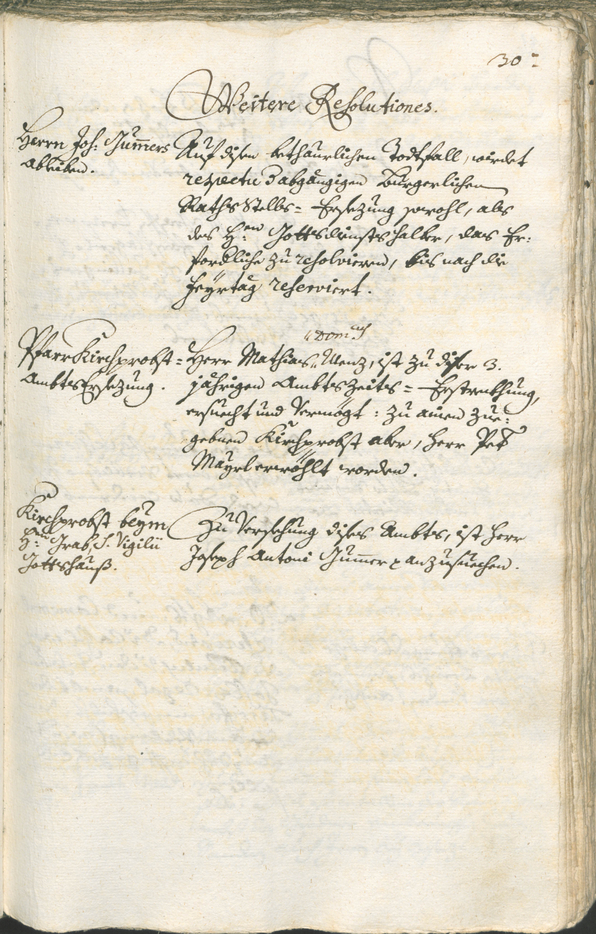 30:
Weitere Resolutiones.
Herrn Joh: Gumers
ableiben.
Auf disen bethaurlichen Todtfall, wirdet
respectu 3 abgängigen Bürgerlichen
Raths Stells= Ersezung sowohl, als
des H: Gottsdiensts halber, das Er:
fordliche zu resolvieren, bis nach die
Feyrtäg reserviert.
Pfarr Kirchprobst=
Ambts Ersezung.
Dom:
Herr Mathias Menz, ist zu diser 3.
jährigen Ambts Zeits= Erstreckhung,
ersuecht und vermögt: zu ainen zue:
gebnen Kirchprobst aber, Herr Pet
Mayrl erwöhlt worden.
Kirchprobst beym
H: Grab, S. Vigilii
Gottshauß.
Zu Versehung dises Ambts, ist Herr
Joseph Antoni Gumer anzusuechen.